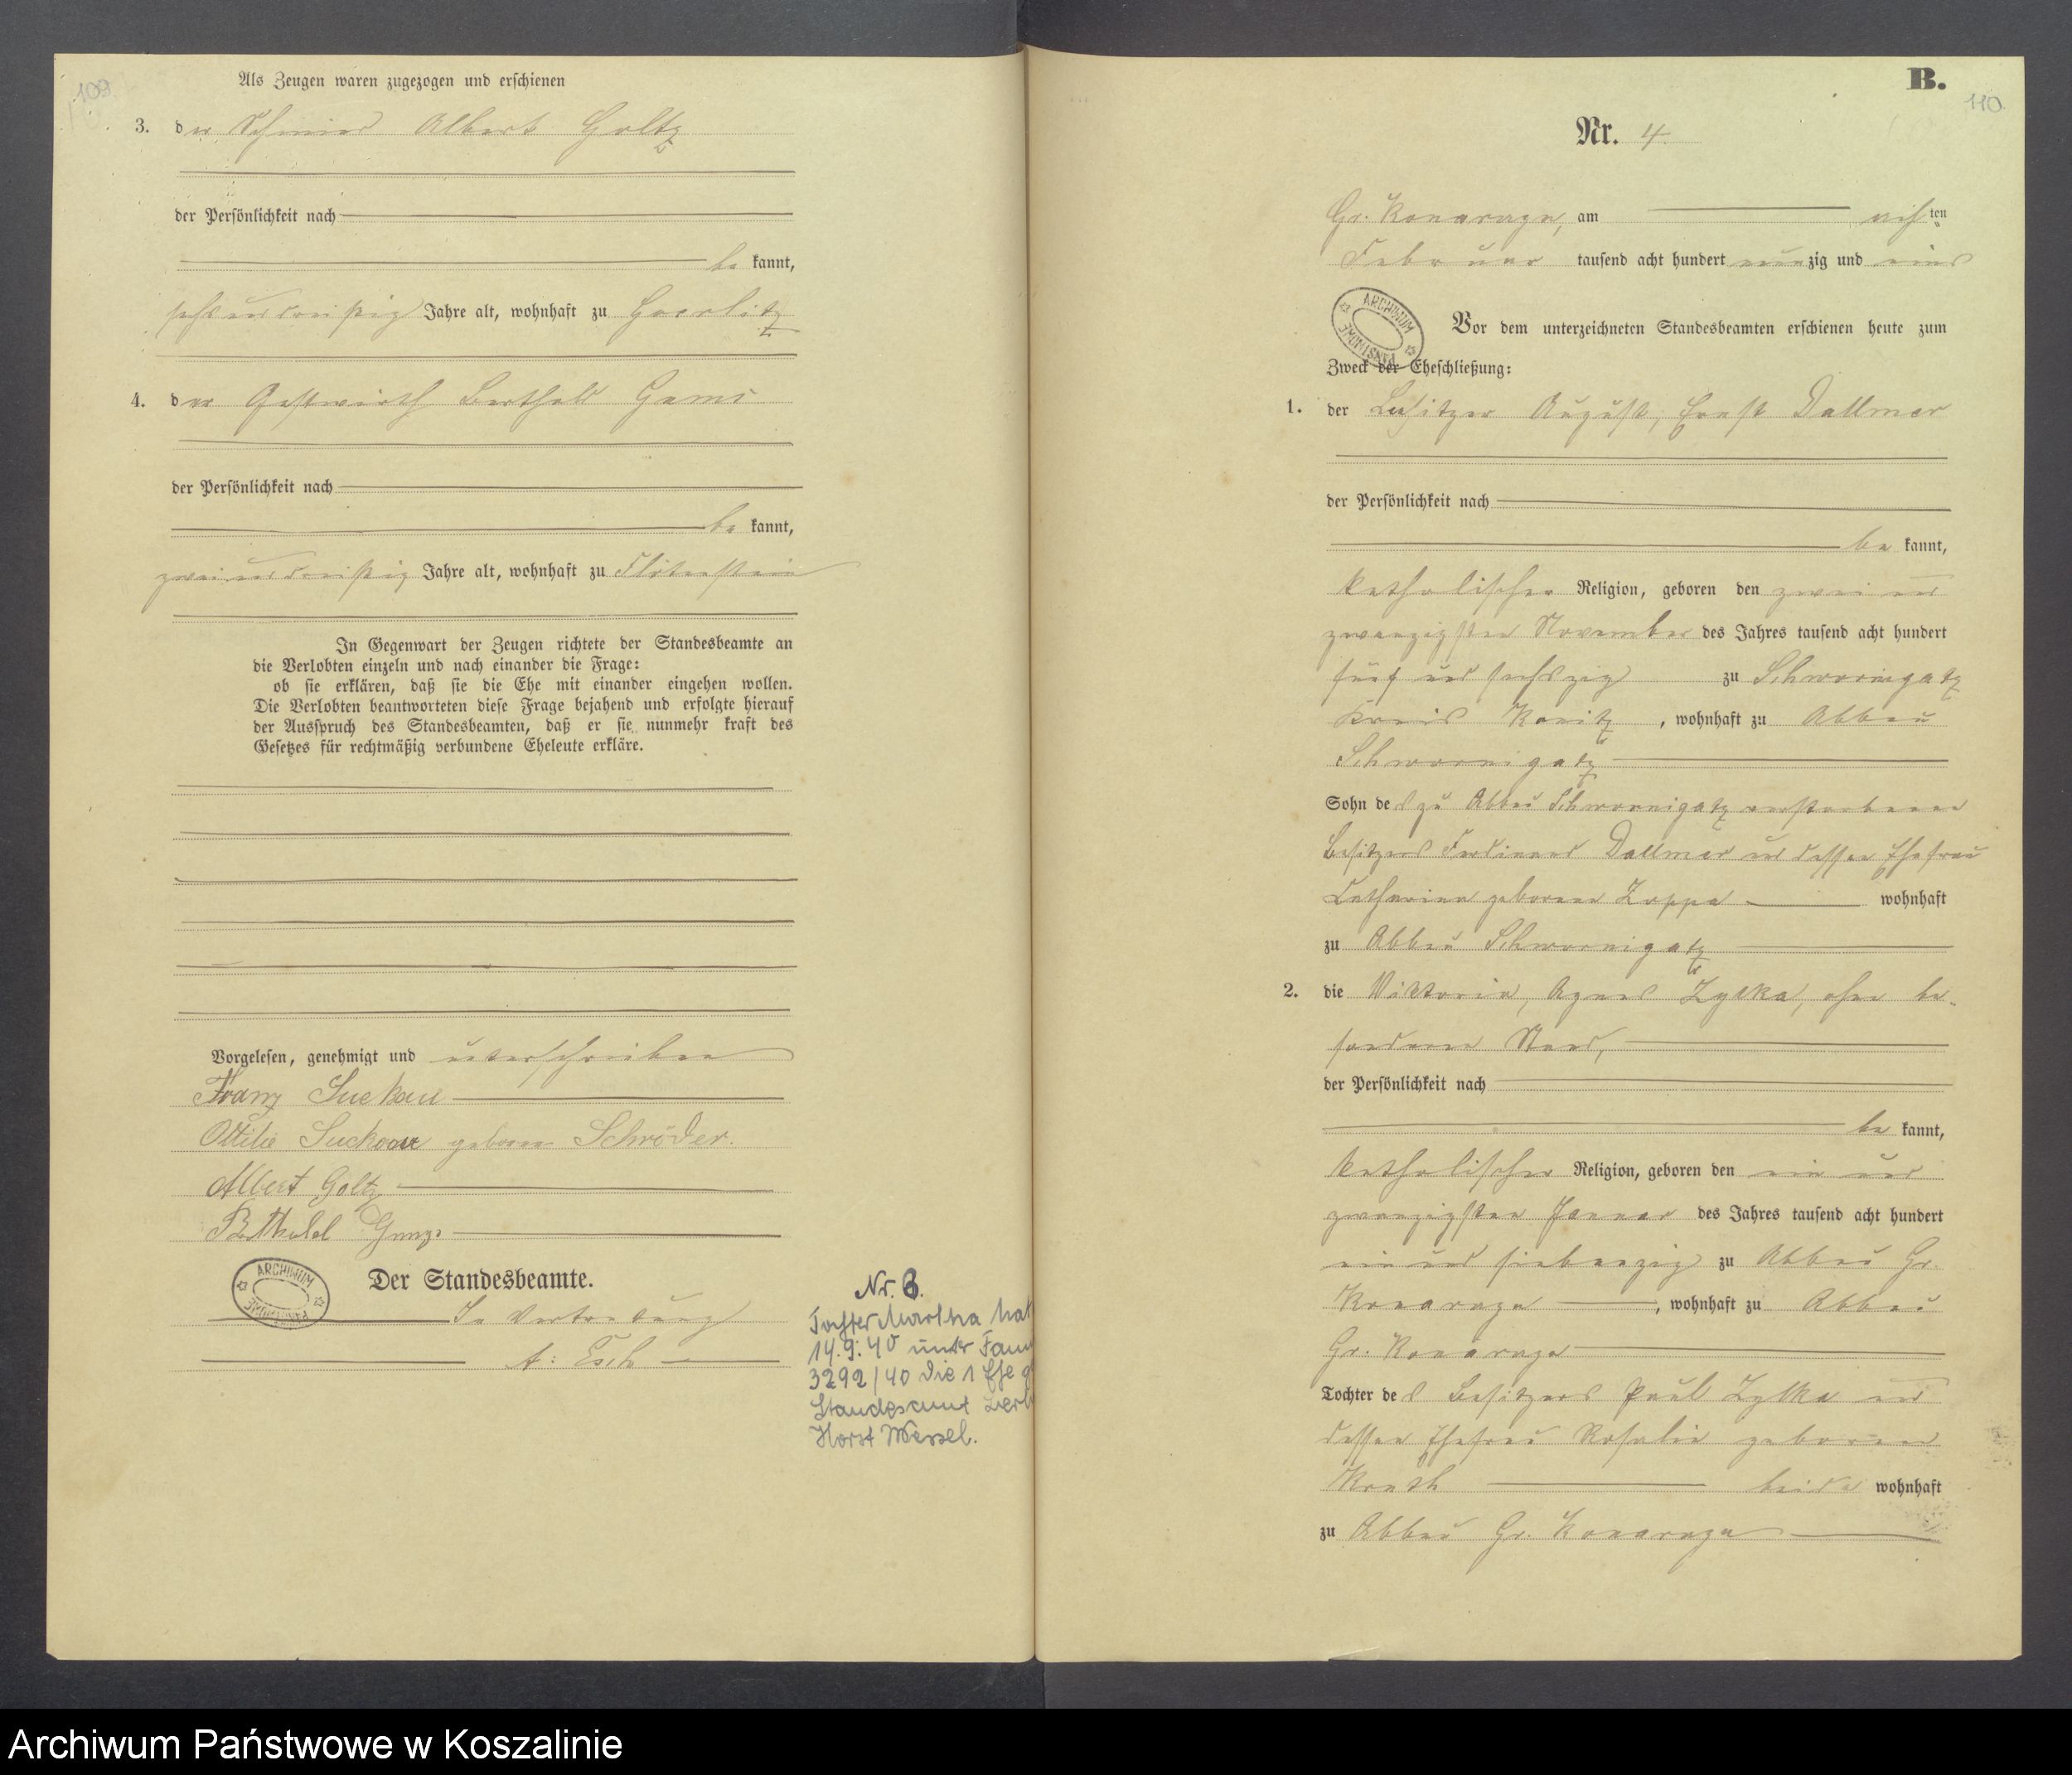 109
Als Zeugen waren zugezogen und erschienen
3. der Schmied Albert Goltz
der Persönlichkeit nach
be kannt,
sechsunddreißig Jahre alt, wohnhaft zu Goerlitz
4. der Gastwirth Berthold
der Persönlichkeit nach
be kannt,
zweiunddreißig Jahre alt, wohnhaft zu Flötenstein
In Gegenwart der Zeugen richtete der Standesbeamte an
die Verlobten einzeln und nach einander die Frage:
ob sie erklären, daß sie die Ehe mit einander eingehen wollen.
Die Verlobten beantworteten diese Frage bejahend und erfolgte hierauf
der Ausspruch des Standesbeamten, daß er sie nunmehr kraft des
Gesetzes für rechtmäßig verbundene Eheleute erkläre.
Vorgelesen, genehmigt und unterschrieben
Franz Suckau
Ottilie Suckau geborne Schröder.
Albert Goltz
Der Standesbeamte.
ARCHIWUM PAŃSTWOWE
In Vertretung
Nr. 3.
Tochter Martha hat
14.9.40 unter Fam
3292/40 die 1 Ehe g
Standesamt Berl
Horst Wessel.
B.
110
Nr. 4
Gr. Konarczyn, am achten
Februar tausend acht hundert neunzig und eins
ARCHIWUM PAŃSTWOWE
Vor dem unterzeichneten Standesbeamten erschienen heute zum
Zweck der Eheschließung:
1. der Besitzer August, Ernst Dallmer
der Persönlichkeit nach
be kannt,
katholischer Religion, geboren den zwei und
zwanzigsten November des Jahres tausend acht hundert
fünf und sechszig zu Schwornigatz
Kreis Konitz, wohnhaft zu Abbau
Schwornigatz
Sohn des zu Abbau Schwornigatz verstorbenen
Besitzers Ferdinand Dallmer und dessen Ehefrau
Catharina geborene Zoppa wohnhaft
zu Abbau Schwornigatz
2. die Viktoria, Agnes Zylka, ohne be-
sonderen Stand,
der Persönlichkeit nach
be kannt,
katholischer Religion, geboren den ein und
zwanzigsten Januar des Jahres tausend acht hundert
ein und siebenzig zu Abbau Gr.
Konarczyn, wohnhaft zu Abbau
Gr. Konarczyn
Tochter des Besitzers Paul Zylka und
dessen Ehefrau Rosalie geborene
beide wohnhaft
zu Abbau Gr. Konarczyn
Archiwum Państwowe w Koszalinie